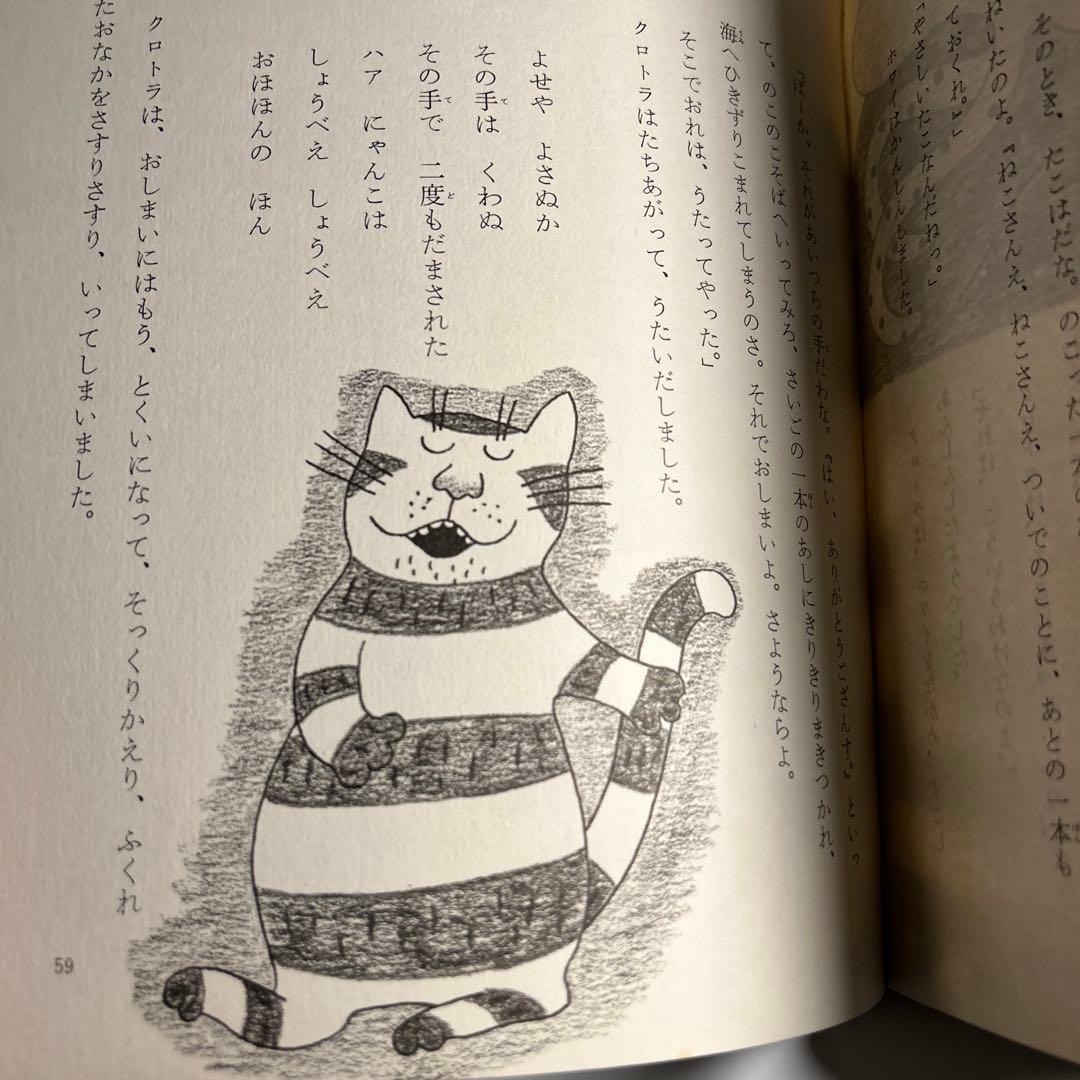 そのとき、たこはだな。のこった一本の
ねいたのよ。『ねこさんえ、ねこさんえ、ついでのことに、あとの一本も
ておくれ。』」
「やさしいたこなんだねっ。」
ホワイはかんしんしました。
「ばーか、それがあいつらの手だわな。『はい、ありがとうござんす。』といっ
て、のこのこそばへいってみろ、さいごの一本のあしにきりきりまきつかれ、
海へひきずりこまれてしまうのさ。それでおしまいよ。さようならよ。
そこでおれは、うたってやった。」
クロトラはたちあがって、うたいだしました。
よせや　よさぬか
その手は　くわぬ
その手で　二度もだまされた
ハア　にゃんこは
しょうべえ　しょうべえ
おほほんの　ほん
クロトラは、おしまいにはもう、とくいになって、そっくりかえり、ふくれ
たおなかをさすりさすり、いってしまいました。
59